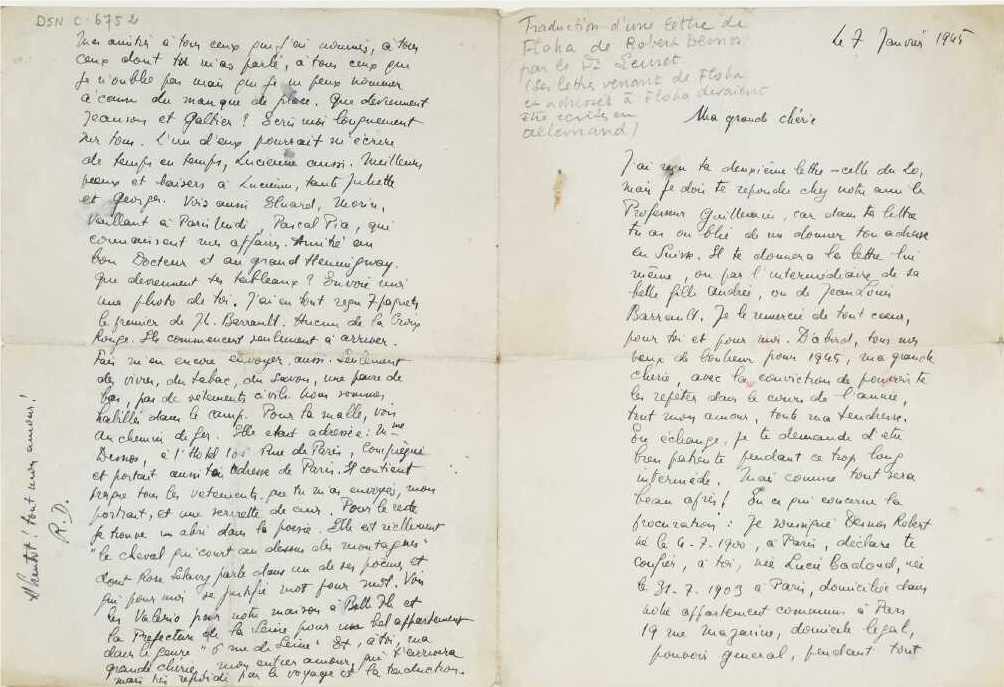 DSN C. 6752
Mes amitiés à tous ceux que j'ai nommés, à tous
ceux dont tu m'as parlé, à tous ceux que
je n'oublie pas mais que je ne peux nommer
à cause du manque de place. Que deviennent
Jeanson et Galtier ? Ecris moi longuement
sur tous. L'un d'eux pourrait m'écrire
de temps en temps, Lucienne aussi. Meilleurs
vœux et baisers à Lucienne, tante Juliette
et Georges. Vois aussi Eluard, Morin,
Vaillant à Paris Midi, Pascal Pia, qui
connaissent mes affaires. Amitié au
bon Docteur et au grand Hemmingway.
Que deviennent tes tableaux ? Envoie moi
une photo de toi. J'ai en tout reçu 7 paquets
le premier de JL. Barrault. Aucun de la Croix
Rouge. Ils commencent seulement à arriver.
Fais m'en encore envoyer aussi. Seulement
des vivres, du tabac, du savon, une paire de
bas, pas de vêtements civils. Nous sommes
habillés dans le camp. Pour la malle, vois
au chemin de fer. Elle était adressée : Mme
Desnos, à l'Hotel Rue de Paris, Compiègne
et portait aussi ton adresse de Paris. Il contient
presque tous les vêtements que tu m'as envoyés, mon
portrait, et une serviette de cuir. Pour le reste
je trouve un abri dans la poésie. Elle est réellement
"le cheval qui court au dessus des montagnes"
dont Rose Sélavy parle dans un de ses poèmes et
qui pour moi se justifie mot pour mot. Vois
les Valerio pour notre maison à Belle Ile et
la Préfecture de la Seine pour un bel appartement
dans le genre "6 rue de Seine". Et, à toi, ma
grande chérie, mon entier amour, qui t'arrivera
mais très refroidi par le voyage et la traduction.
A bientôt ! tout mon amour !
R.D.
Traduction d'une lettre de
Floha de Robert Desnos
par le Dr
(Les lettres venant de Floha
ou adressées à Floha devaient
être écrites en
allemand)
Le 7 Janvier 1945
Ma grande chérie
J'ai reçu ta deuxième lettre - celle du 20,
mais je dois te répondre chez notre ami le
Professeur Guillmain, car dans ta lettre
tu as oublié de me donner ton adresse
en Suisse. Il te donnera la lettre lui
même, ou par l'intermédiaire de sa
belle fille Andrée, ou de Jean Louis
Barrault. Je le remercie de tout cœur,
pour toi et pour moi. D'abord, tous mes
vœux de bonheur pour 1945, ma grande
chérie, avec la conviction de pouvoir te
les répéter dans le cours de l'année,
tout mon amour, toute ma tendresse.
En échange, je te demande d'être
bien patiente pendant ce trop long
intermède. Mais comme tout sera
beau après ! En ce qui concerne la
procuration : Je soussigné Desnos Robert
né le 4-7-1900, à Paris, déclare te
confier, à toi, née Lucie Badoud, née
le 31-7-1903 à Paris, domiciliée dans
notre appartement commun à Paris
19 rue Mazarine, domicile légal,
pouvoir général, pendant tout